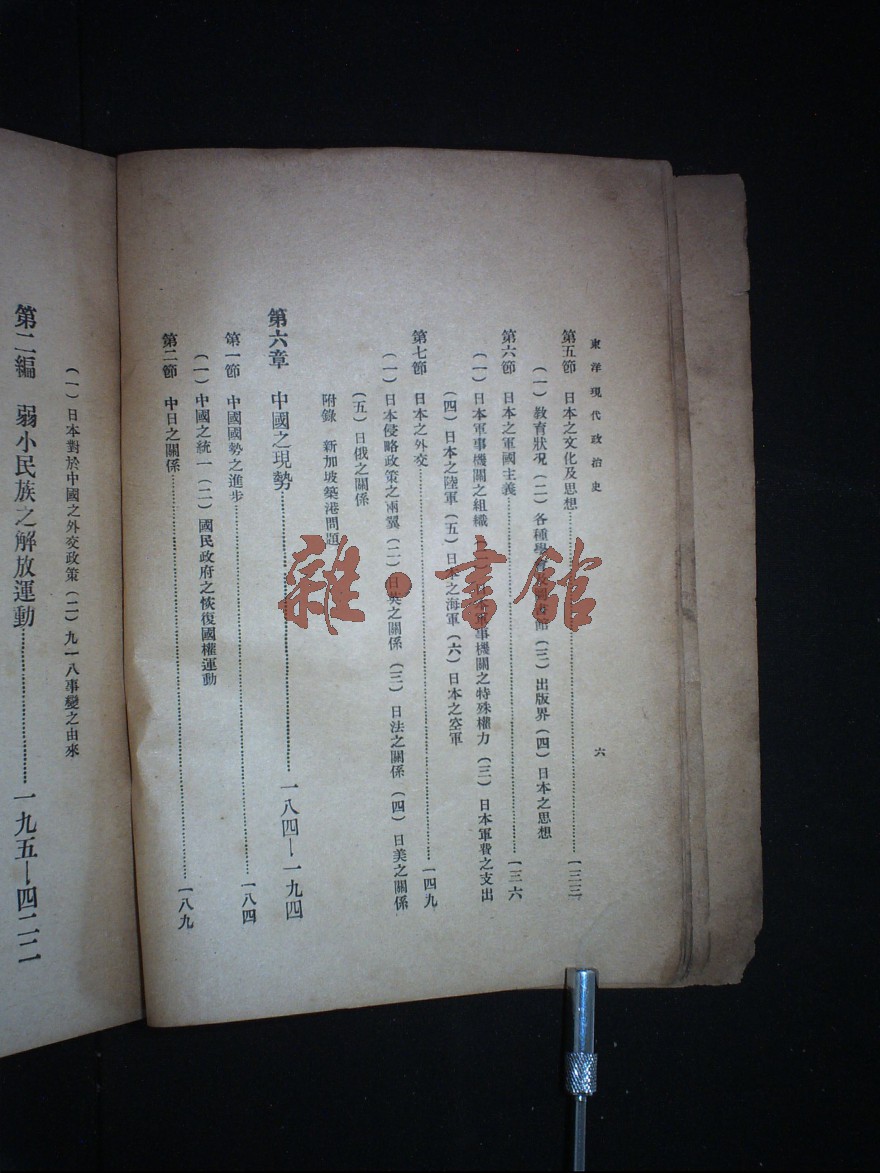 東洋現代政治史
六
第五節 日本之文化及思想……一三三
(一)教育狀況(二)各種學 (三)出版界(四)日本之思想
第六節 日本之軍國主義……一三六
(一)日本軍事機關之組織 事機關之特殊權力(三)日本軍費之支出
(四)日本之陸軍(五)日本之海軍(六)日本之空軍
第七節 日本之外交……一四九
(一)日本侵略政策之兩翼(二)日英之關係(三)日法之關係(四)日美之關係
(五)日俄之關係
附錄 新加坡築港問題
第六章 中國之現勢……一八四—一九四
第一節 中國國勢之進步……一八四
(一)中國之統一(二)國民政府之恢復國權運動
第二節 中日之關係……一八九
(一)日本對於中國之外交政策(二)九一八事變之由來
第二編 弱小民族之解放運動……一九五—四二二
雜·書館